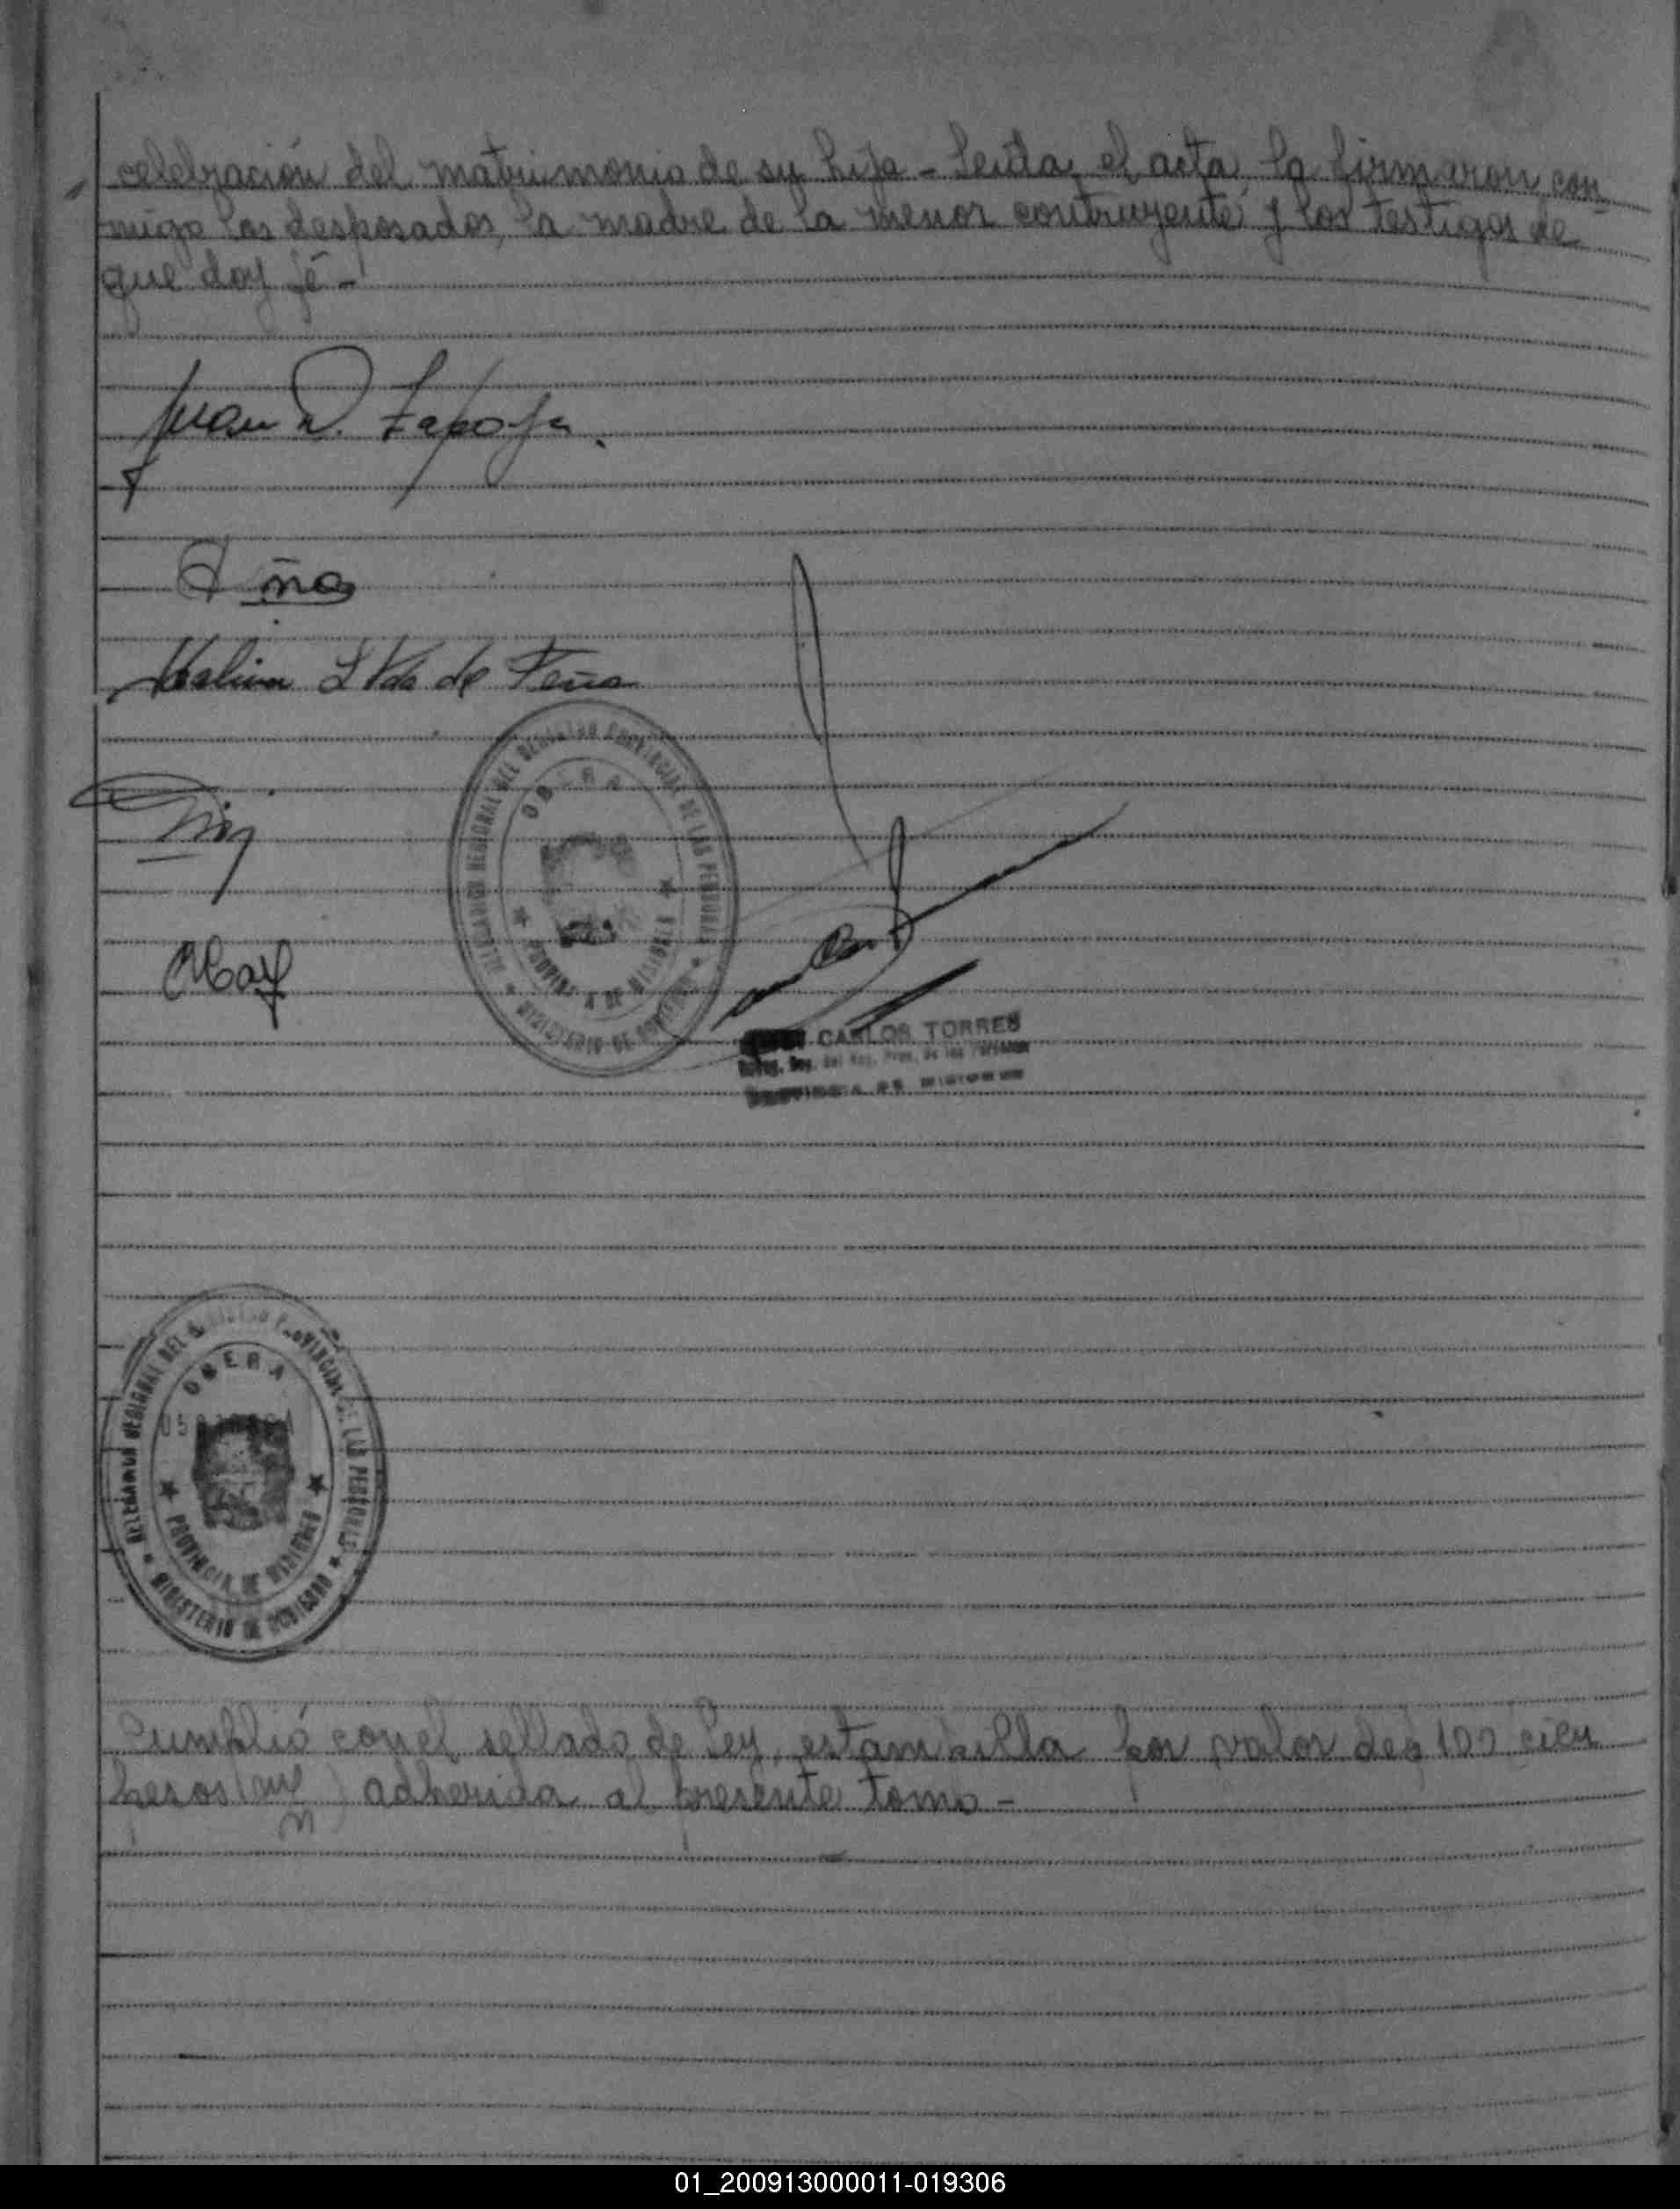 celebración del matrimonio de su hija - Leída el acta, la firmaron con
migo los desposados, la madre de la menor contruyente y los testigos de
que doy fé -
Juan D. Zapo
L Vda de Peña
DELEGACION REGIONAL DEL REGISTRO PROVINCIAL DE LAS PERSONAS
OBERA
PROVINCIA DE MISIONES
MINISTERIO DE GOBIERNO
CARLOS TORRES
Deleg. Reg. del Reg. Prov. de las Personas
PROVINCIA DE MISIONES
DELEGACION REGIONAL DEL REGISTRO PROVINCIAL DE LAS PERSONAS
OBERA
PROVINCIA DE MISIONES
MINISTERIO DE GOBIERNO
Cumplió con el sellado de Ley, estampilla por valor de $ 100 cien
pesos (m/n) adherida al presente tomo -
01_200913000011-019306